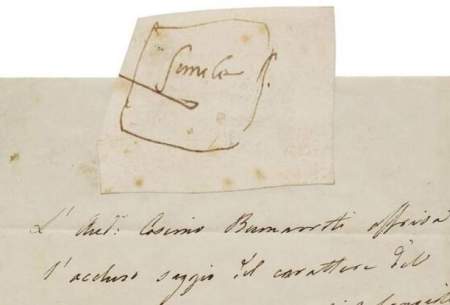 Simile
L' Aud: Cosimo Buonarroti offriva
l'accluso saggio del carattere del